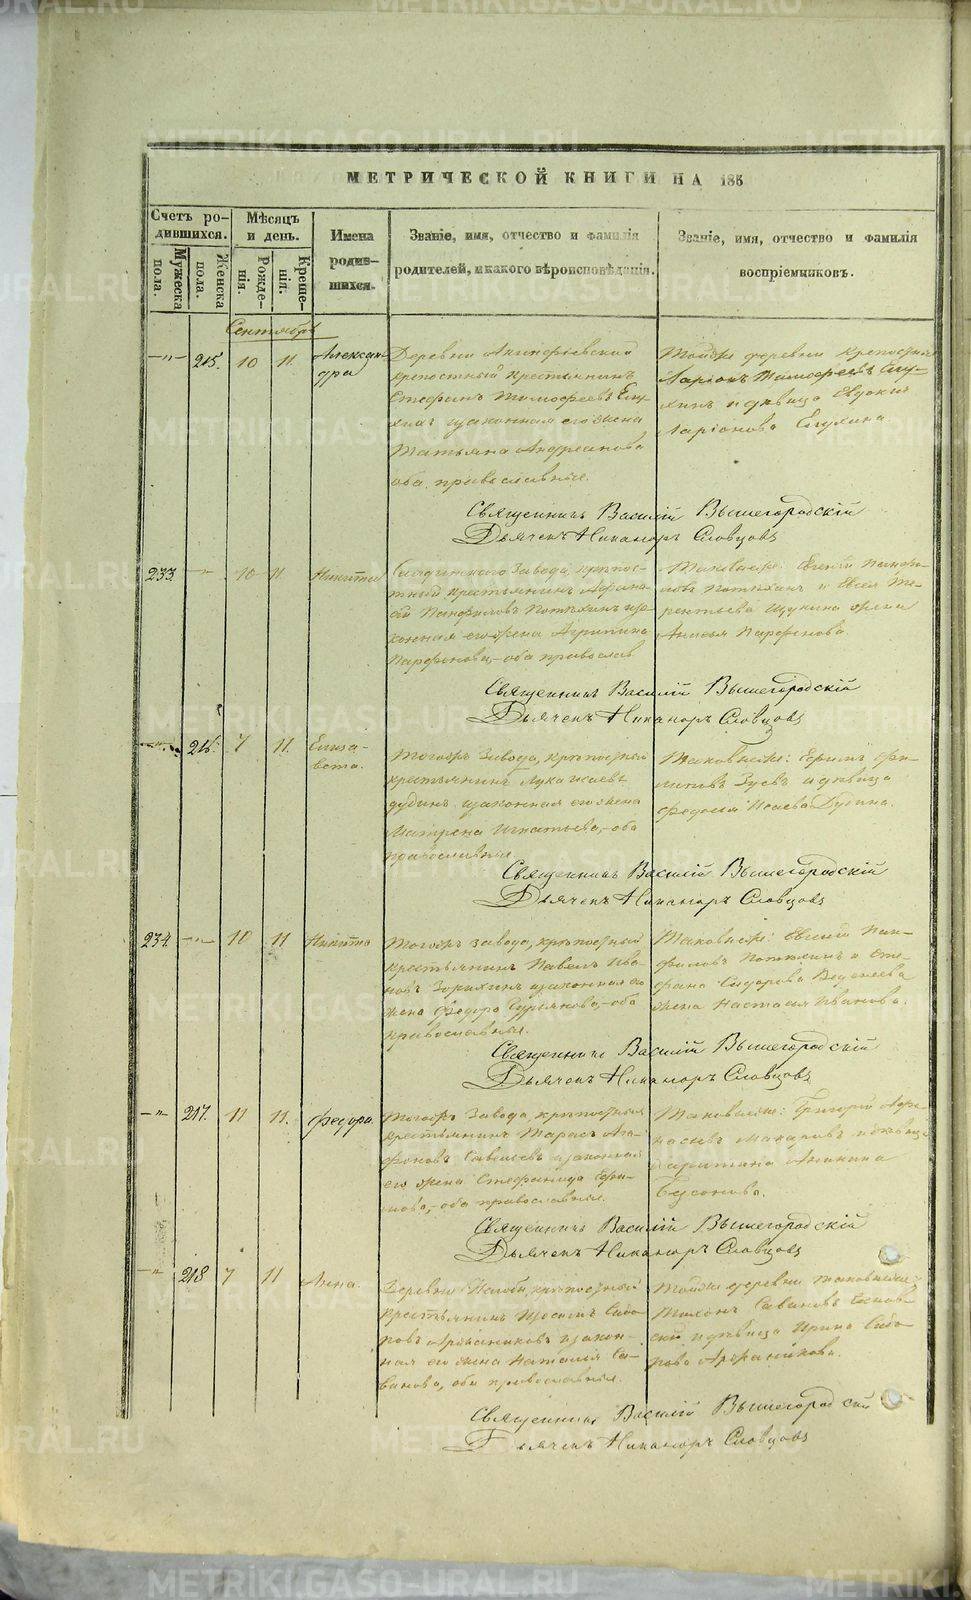 МЕТРИЧЕСКОЙ КНИГИ НА 185
Счетъ ро-
дившихся.
Мужеска
пола.
Женска
пола.
Мѣсяцъ
и день.
Рожде-
нія.
Креще-
нія.
Имена
родив-
шихся.
Званіе, имя, отчество и фамилія
родителей, и какого вѣроисповѣданія.
Званіе, имя, отчество и фамилія
воспріемниковъ.
Сентябрь
—"— 215. 10 11. Алексан-
дра
Деревни
крепостный крестьянинъ
Стефанъ Тимофеевъ
и законная его жена
Татьяна Андреанова
оба православные.
Тойже деревни
Ларіонъ Тимофеевъ
и дѣвица Евдокія
Ларіонова Елухина
Священникъ Василій Вышегородскій
Дьячекъ Никаноръ Словцовъ
233. —"— 10 11 Никита
завода, крѣпос-
тный крестьянинъ
Панфиловъ Потѣхинъ и за-
конная его жена Агрипина
Парфенова, оба православ
Таковыеже: Евгеній Панфи-
ловъ Потѣхинъ и
жена
Анисья Парфенова.
Священникъ Василій Вышегородскій
Дьячекъ Никаноръ Словцовъ
—"— 216. 7 11. Елиза-
вета.
Тогожъ завода, крѣпостный
крестьянинъ Лука Исаевъ
Дудинъ и законная его жена
Матрена Игнатьева, оба
православные.
Таковыеже: Ефимъ Фи-
липовъ Зуевъ и дѣвица
Федосья Исаева Дудина.
Священникъ Василій Вышегородскій
Дьячекъ Никаноръ Словцовъ
234. —"— 10 11 Никита
Тогожъ завода, крѣпостный
крестьянинъ Павелъ Ива-
новъ и законная его
жена Федора оба
православные.
Таковыеже: Евгеній Пан-
филовъ Потѣхинъ и Сте-
фана Сидорова
жена Настасья Иванова.
Священникъ Василій Вышегородскій
Дьячекъ Никаноръ Словцовъ
—"— 217. 11 11. Федора.
Тогожъ завода, крѣпостный
крестьянинъ Тарасъ Ага-
фоновъ Савельевъ и законная
его жена Стефанида Ефи-
мова, оба православные.
Таковыеже: Григорій Афа-
насьевъ Макаровъ и дѣвица
Харитина Аникина
Священникъ Василій Вышегородскій
Дьячекъ Никаноръ Словцовъ
—"— 218 7 11 Анна.
Деревни крѣпостный
крестьянинъ Сидо-
ровъ и закон-
ная его жена Наталія Са-
ванова, оба православные.
Тойже деревни таковыеже:
Тихонъ Савановъ
и дѣвица Ирина Сидо-
рова
Священникъ Василій Вышегородскій
Дьячекъ Никаноръ Словцовъ
METRIKI.GASO-URAL.RU